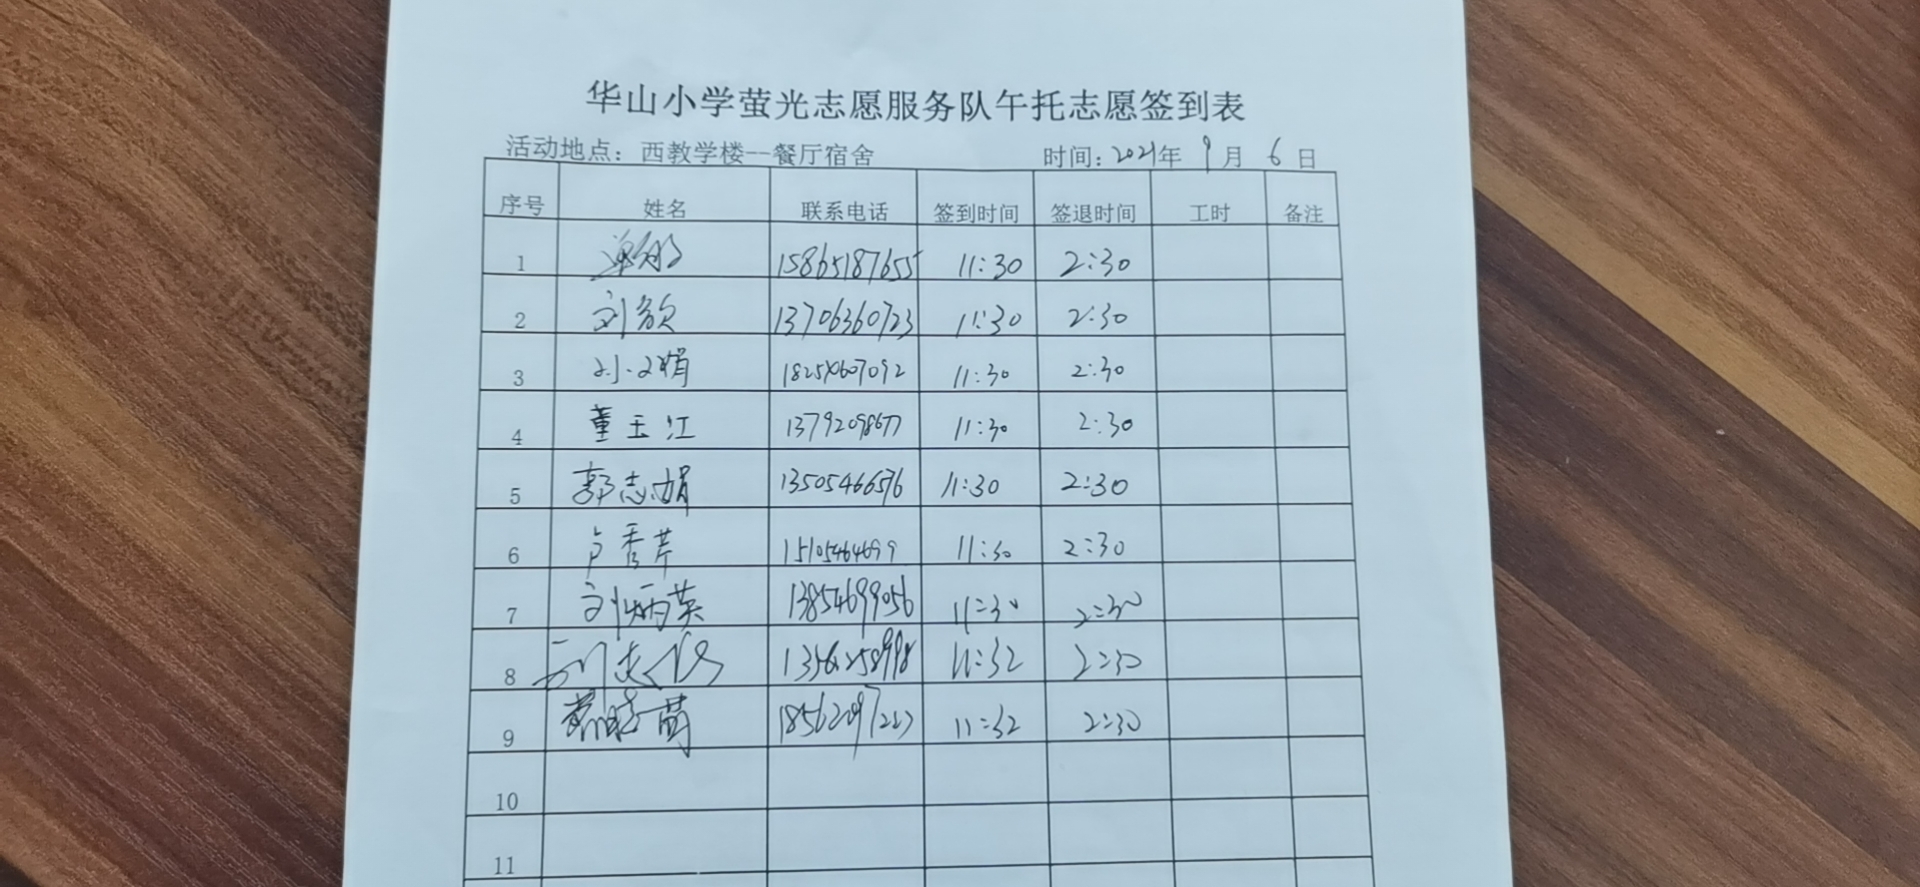 华山小学萤光志愿服务队午托志愿签到表
活动地点：西教学楼--餐厅宿舍 时间：2021年 9月 6日
序号 姓名 联系电话 签到时间 签退时间 工时 备注
1 15865187655 11:30 2:30
2 刘欣 13706360723 11:30 2:30
3 孙文娟 11:30 2:30
4 董玉江 13792098677 11:30 2:30
5 郭志娟 13505466576 11:30 2:30
6 卢秀芹 15105464699 11:30 2:30
7 刘炳英 13854699056 11:30 2:30
8 11:32 2:30
9 11:32 2:30
10
11